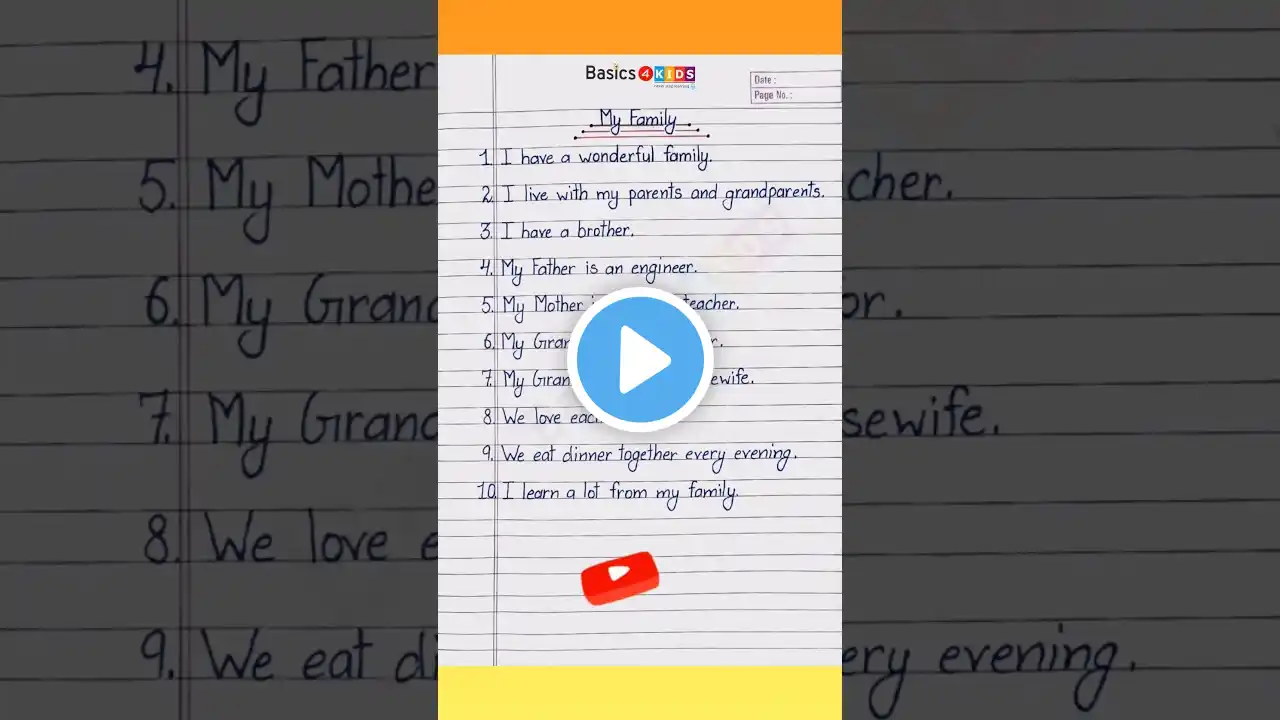 4. My Father
5. My Mothe
6. My Grand
7. My Grand
8. We love e
9. We eat di
Basics 4 KIDS
Date :
Page No. :
My Family
1. I have a wonderful family.
2. I live with my parents and grandparents.
3. I have a brother.
4. My Father is an engineer.
5. My Mother teacher.
6. My Gran
7. My Gran ewife.
8. We love eac
9. We eat dinner together every evening.
10. I learn a lot from my family.
cher.
or.
sewife.
ery evening.